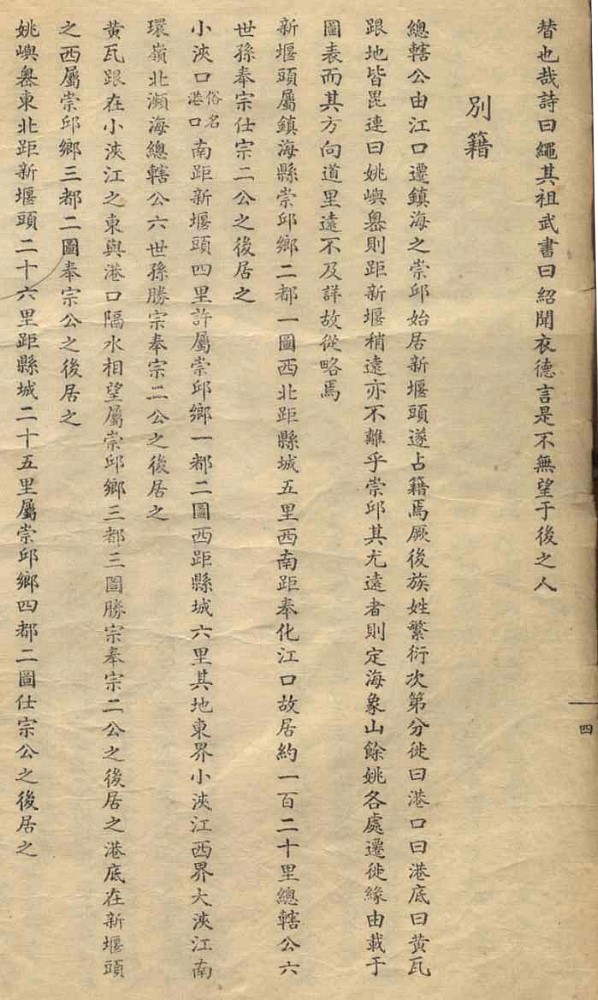 替也哉詩曰繩其祖武書曰紹聞衣德言是不無望于後之人
別籍
總轄公由江口遷鎮海之崇邱始居新堰頭遂占籍焉厥後族姓繁衍次第分徙曰港口曰港底曰黃瓦
跟地皆毘連曰姚嶼嶴則距新堰稍遠亦不離乎崇邱其尤遠者則定海象山餘姚各處遷徙緣由載于
圖表而其方向道里遠不及詳故從略焉
新堰頭屬鎮海縣崇邱鄉二都一圖西北距縣城五里西南距奉化江口故居約一百二十里總轄公六
世孫奉宗仕宗二公之後居之
小浹口俗名港口南距新堰頭四里許屬崇邱鄉一都二圖西距縣城六里其地東界小浹江西界大浹江南
環嶺北瀕海總轄公六世孫勝宗奉宗二公之後居之
黃瓦跟在小浹江之東與港口隔水相望屬崇邱鄉三都三圖勝宗奉宗二公之後居之港底在新堰頭
之西屬崇邱鄉三都二圖奉宗公之後居之
姚嶼嶴東北距新堰頭二十六里距縣城二十五里屬崇邱鄉四都二圖仕宗公之後居之
四